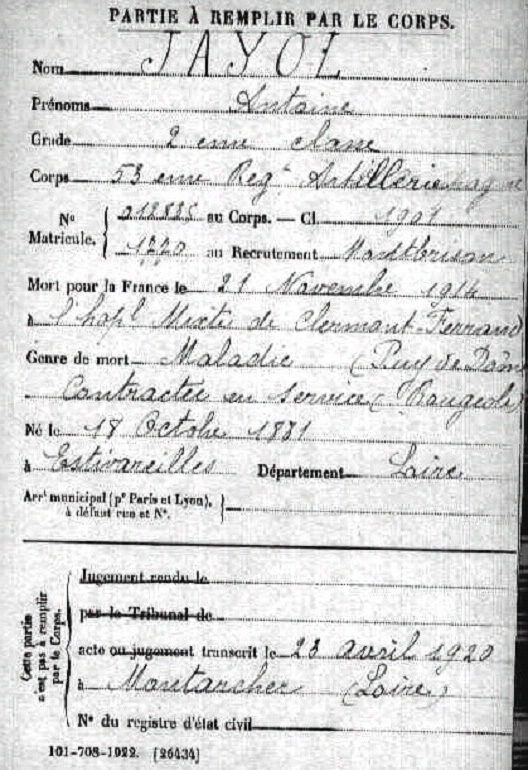 PARTIE À REMPLIR PAR LE CORPS.
Nom JAYOL
Prénoms Antoine
Grade 2 eme classe
Corps 53 eme Regt Artillerie
No Matricule. au Corps. — Cl. 1901
1220 au Recrutement Montbrison
Mort pour la France le 21 Novembre 1914
à l'hopl Mixte de Clermont-Ferrand
Genre de mort Maladie (Puy de Dôme
Contractée en service (Rougeole)
Né le 18 Octobre 1881
à Estivareilles Département Loire
Arrt municipal (pr Paris et Lyon),
à défaut rue et No.
Cette partie
n'est pas à remplir
par le Corps.
Jugement rendu le
par le Tribunal de
acte ou jugement transcrit le 23 avril 1920
à Montarcher (Loire)
No du registre d'état civil
101-708-1922. [26434]